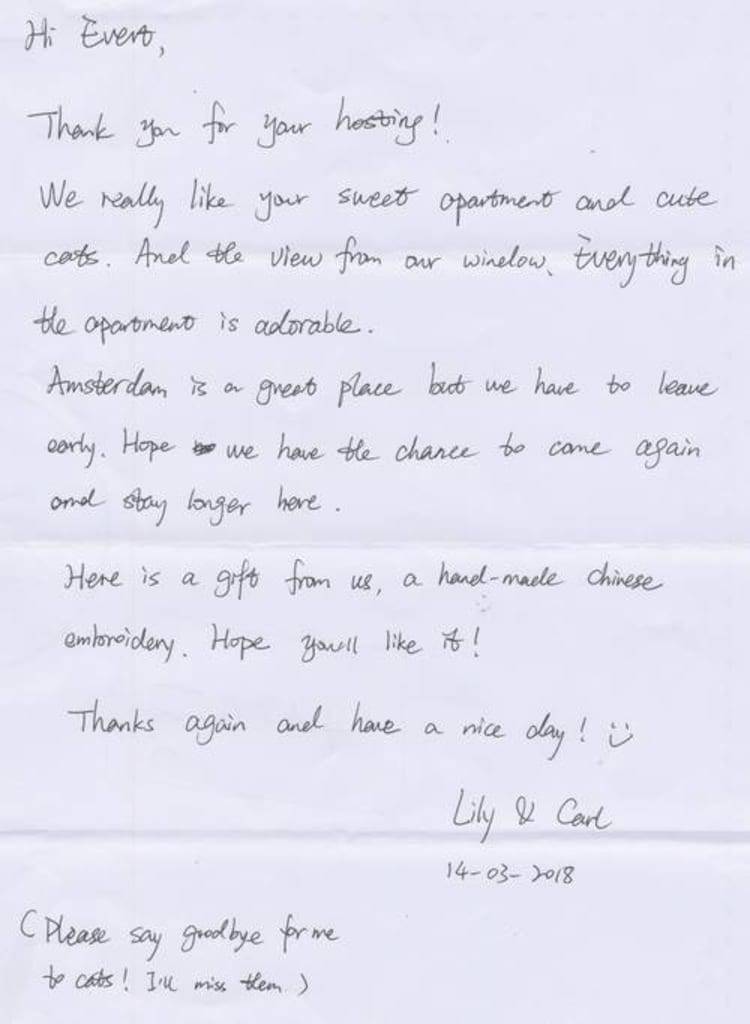 Hi Evert,
Thank you for your hosting!
We really like your sweet apartment and cute
cats. And the view from our window. Everything in
the apartment is adorable.
Amsterdam is a great place but we have to leave
early. Hope we have the chance to come again
and stay longer here.
Here is a gift from us, a hand-made chinese
embroidery. Hope you'll like it!
Thanks again and have a nice day! :)
Lily & Carl
14-03-2018
(Please say goodbye for me
to cats! I'll miss them.)